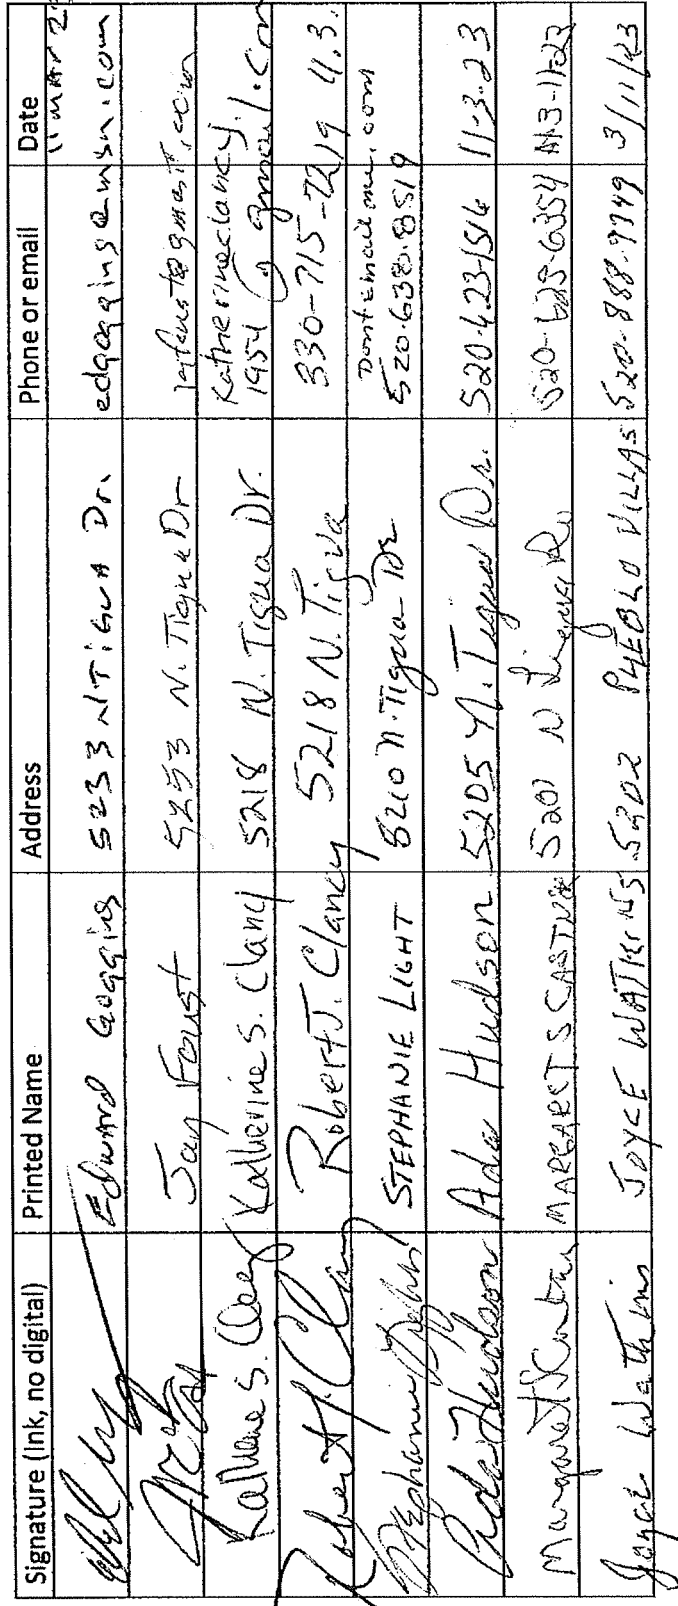 Signature (Ink, no digital) Printed Name Address Phone or email Date
Edward Goggins 5233 N Tigua Dr. edgoggins@msn.com 11 Mar 2
Jay Foust 5253 N. Tigua Dr
Katherine S. Clancy Katherine S. Clancy 5218 N. Tigua Dr. Katherineclancy.
1954 @ gmail.com
Robert J. Clancy Robert J. Clancy 5218 N. Tigua 330-715-7219 11.3.
Stephanie Light STEPHANIE LIGHT 5210 N. Tigua Dr Dont email me.com
520.638.8519
Ada Hudson Ada Hudson 5205 N. Tigua Dr. 520.423-1516 11-3-23
Margaret S Castne MARGARET S CASTNE 5201 N Tigua Dr. 520-625-6354
Joyce Watkins JOYCE WATKINS 5202 PUEBLO VILLAS 520-888-9749 3/11/23